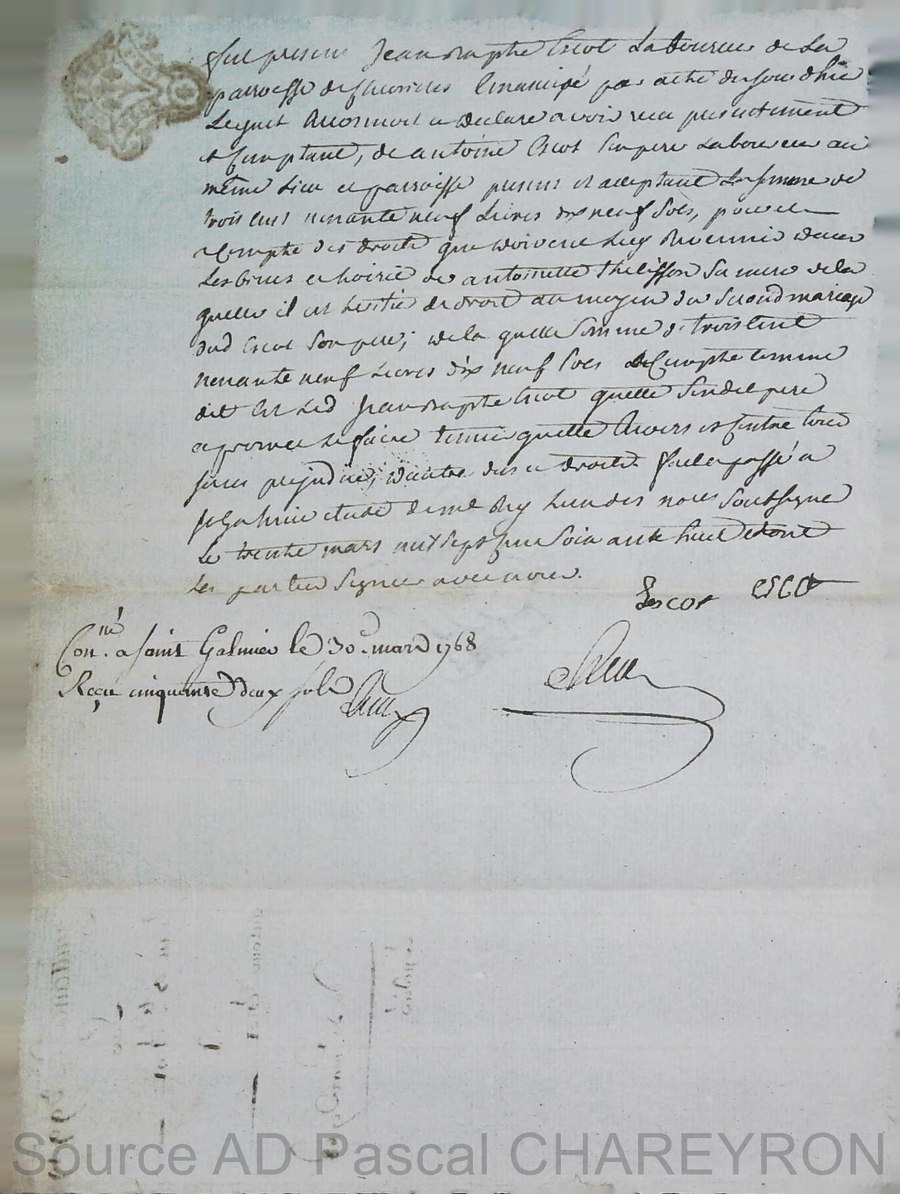 fut present Jean baptiste Escot Laboureur de La
parroisse de emancipé par acte du jourdhuy
Lequel a declaré avoir recu presentement
et Comptant, de antoine Escot Son pere Laboureur au
même Lieu et parroisse present et acceptant La somme de
trois cent nonante neuf Livres dix neuf Sols, pour et
a Compte des droits que doivent Luy Revenir dans
Les biens et hoirie de antoinette thelisson Sa mere de la
quelle il est Saisie de droit au moyen du Second mariage
dud Escot Son pere; de la quelle Somme de trois Cent
nonante neuf Livres dix neuf Sols Compte comme
dit est Led Jean baptiste Escot quitte Sondit pere
a promet Le faire tenir quitte Envers et Contre tous
sans prejudice, dautre des droits. fait et passé a
St Galmier etude de me Lun des nores Soussigné
Le trente mars mil Sept Cent Soixante huit et ont
Les parties Signé avec nous.
Escot escot
Conté. a saint Galmier le 30e. mars 1768
Reçu cinquante deux sols
Source AD Pascal CHAREYRON